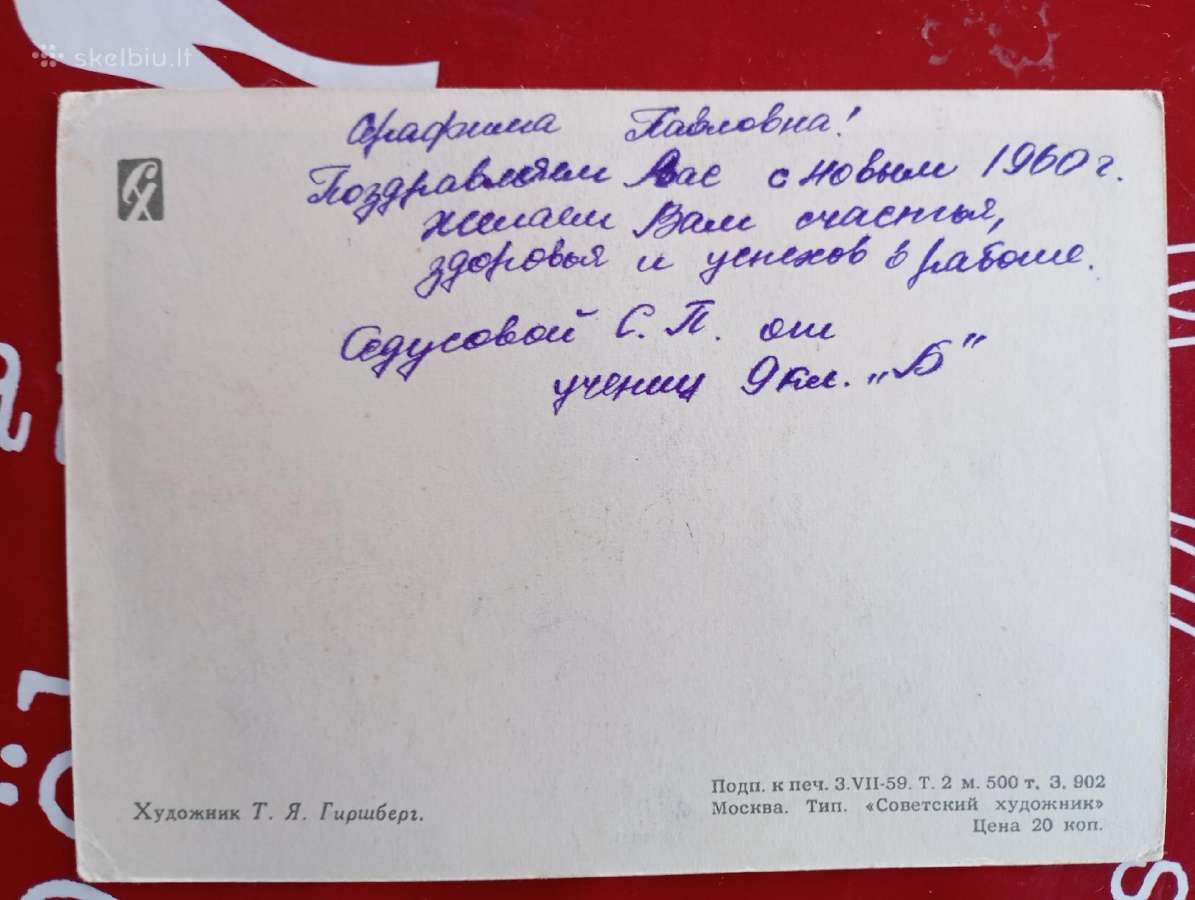 skelbiu.lt
Серафима Павловна!
Поздравляем Вас с новым 1960 г.
желаем Вам счастья,
здоровья и успехов в работе.
Седусовой С. П. от
учениц 9 кл. „Б"
Художник Т. Я. Гиршберг.
Подп. к печ. 3.VII-59. Т. 2 м. 500 т. З. 902
Москва. Тип. «Советский художник»
Цена 20 коп.